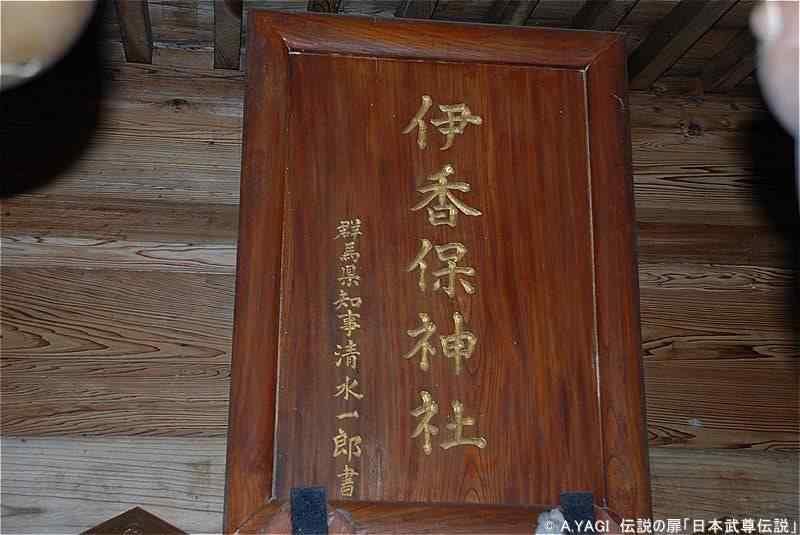 伊香保神社
群馬県知事清水一郎書
© A.YAGI 伝説の扉「日本武尊伝説」